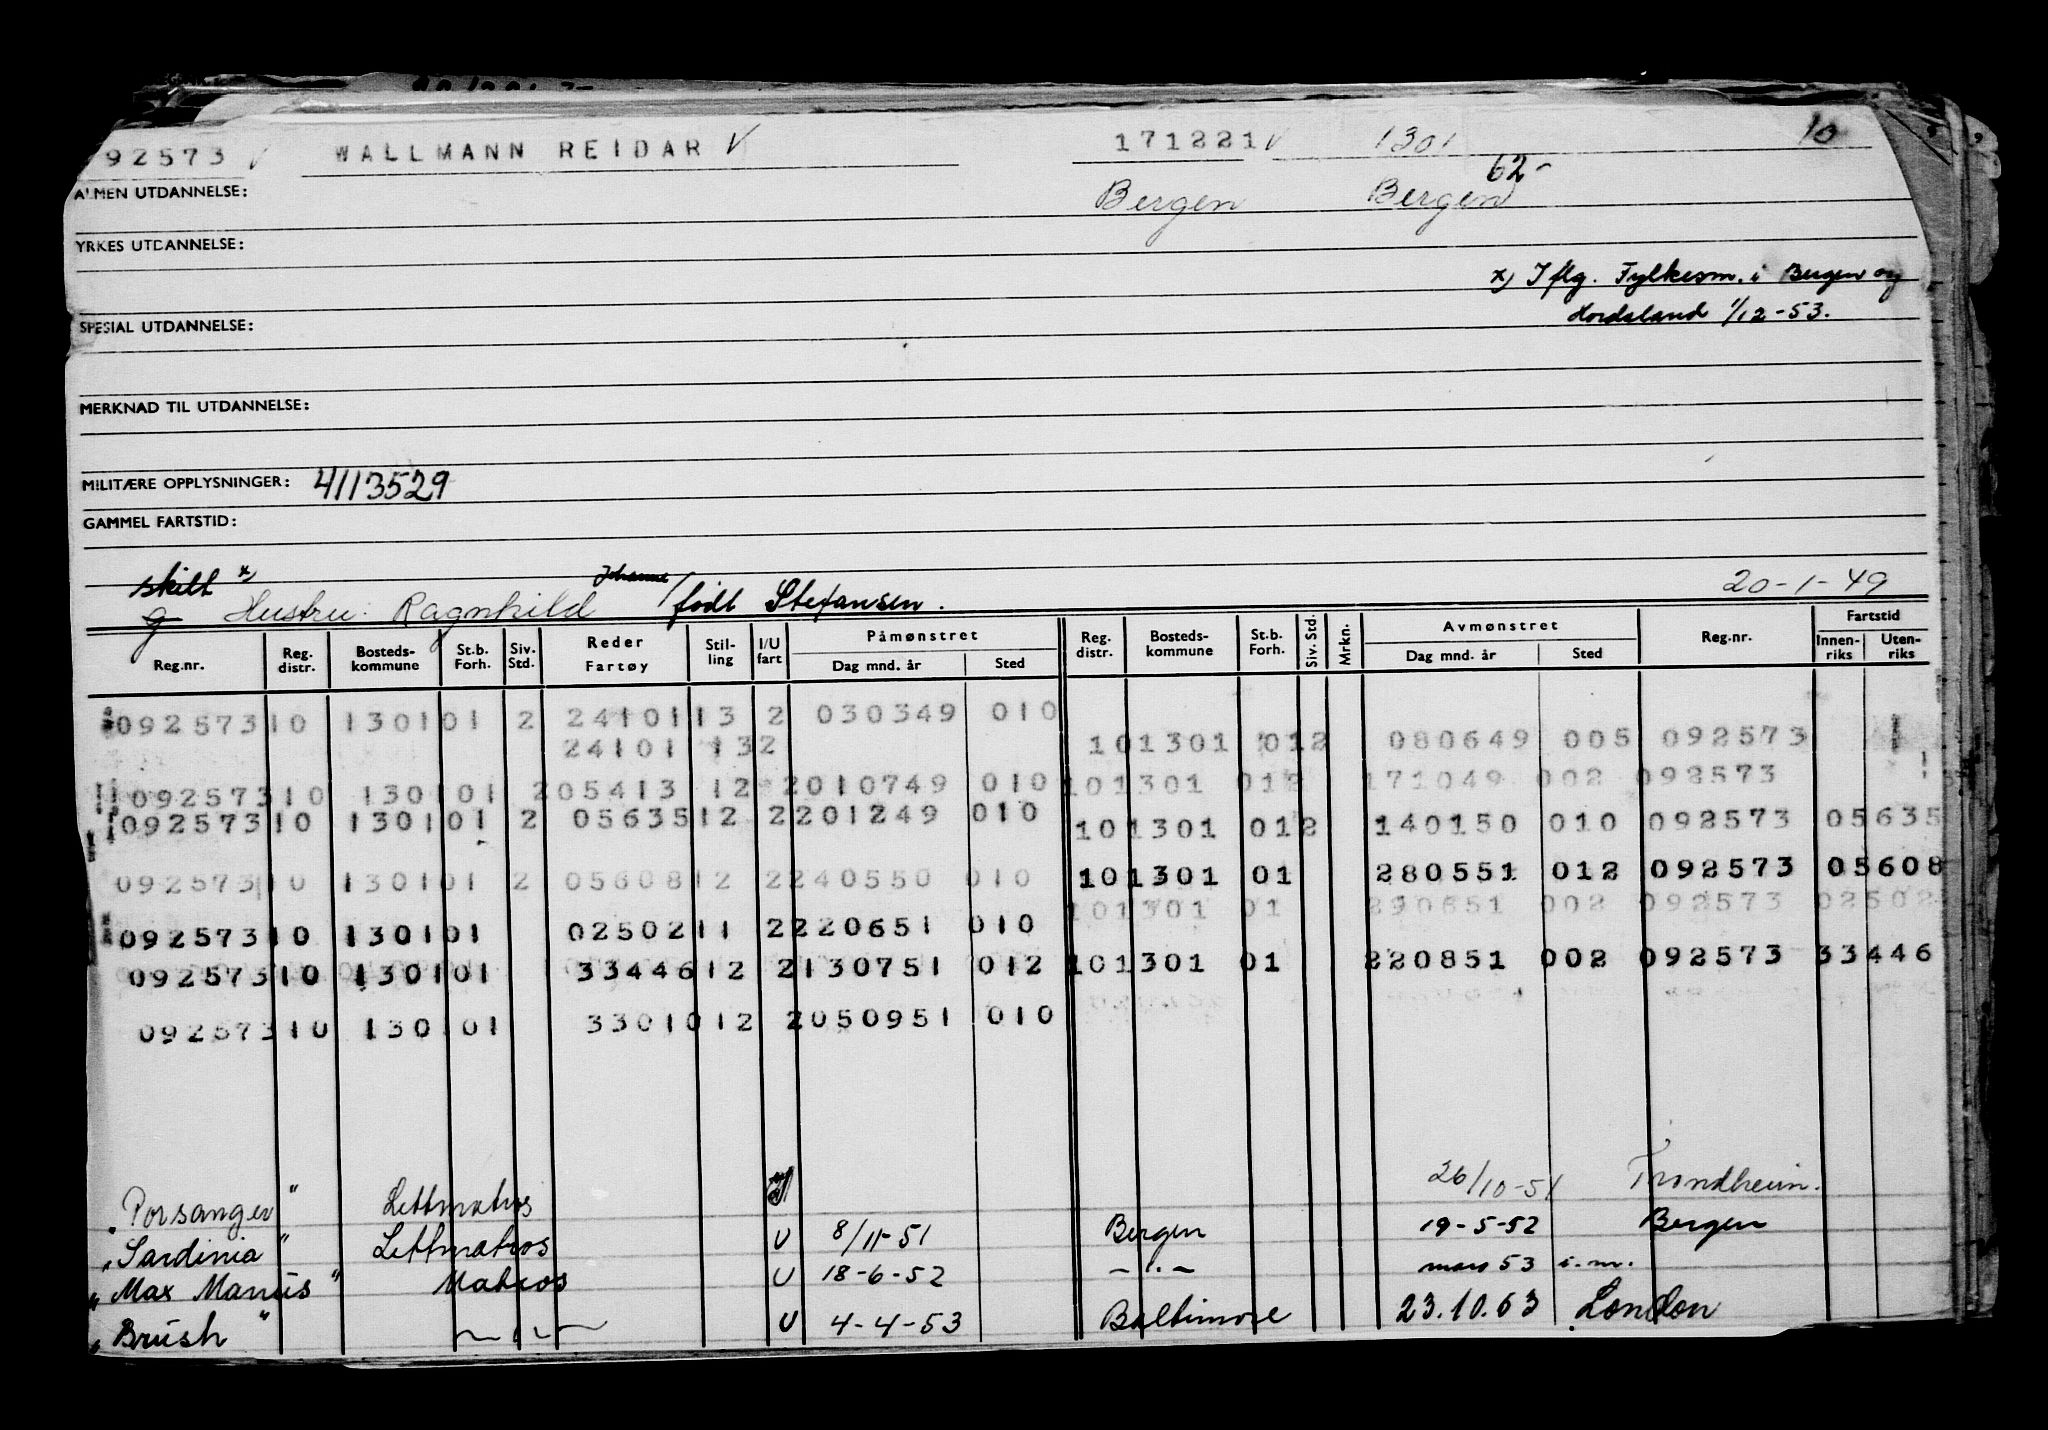 92573 V WALLMANN REIDAR V 171221 V 1301 10
62-
ALMEN UTDANNELSE: Bergen Bergen
YRKES UTDANNELSE:
x) Iflg. Fylkesm. i Bergen og
Hordaland 1/12-53.
SPESIAL UTDANNELSE:
MERKNAD TIL UTDANNELSE:
MILITÆRE OPPLYSNINGER: 4113529
GAMMEL FARTSTID:
skilt x) Johanne
g Hustru: Ragnhild / født Stefansen. 20-1-49
Reg.nr. Reg. distr. Bosteds-kommune St.b. Forh. Siv. Std. Reder Fartøy Stil-ling I/U fart Påmønstret Dag mnd. år Sted Reg. distr. Bosteds-kommune St.b. Forh. Siv. Std. Mrkn. Avmønstret Dag mnd. år Sted Reg.nr. Fartstid Innen-riks Uten-riks
092573 10 1301 01 2 24101 13 2 030349 010
24101 13 2 10 1301 01 2 080649 005 092573
092573 10 1301 01 2 05413 12 2 010749 010 10 1301 01 2 171049 002 092573
092573 10 1301 01 2 05635 12 2 201249 010 10 1301 01 2 140150 010 092573 05635
092573 10 1301 01 2 05608 12 2 240550 010 10 1301 01 280551 012 092573 05608
092573 10 1301 01 02502 11 2 220651 010 10 1301 01 290651 002 092573 02502
092573 10 1301 01 33446 12 2 130751 012 10 1301 01 220851 002 092573 33446
092573 10 1301 01 33010 12 2 050951 010
"Porsanger" Lettmatros 26/10-51 Trondheim.
"Sardinia" Lettmatros U 8/11-51 Bergen 19-5-52 Bergen
"Max Manus" Matros U 18-6-52 -"- mars 53 i.m.
"Brush" -"- U 4-4-53 Baltimore 23.10.63 London